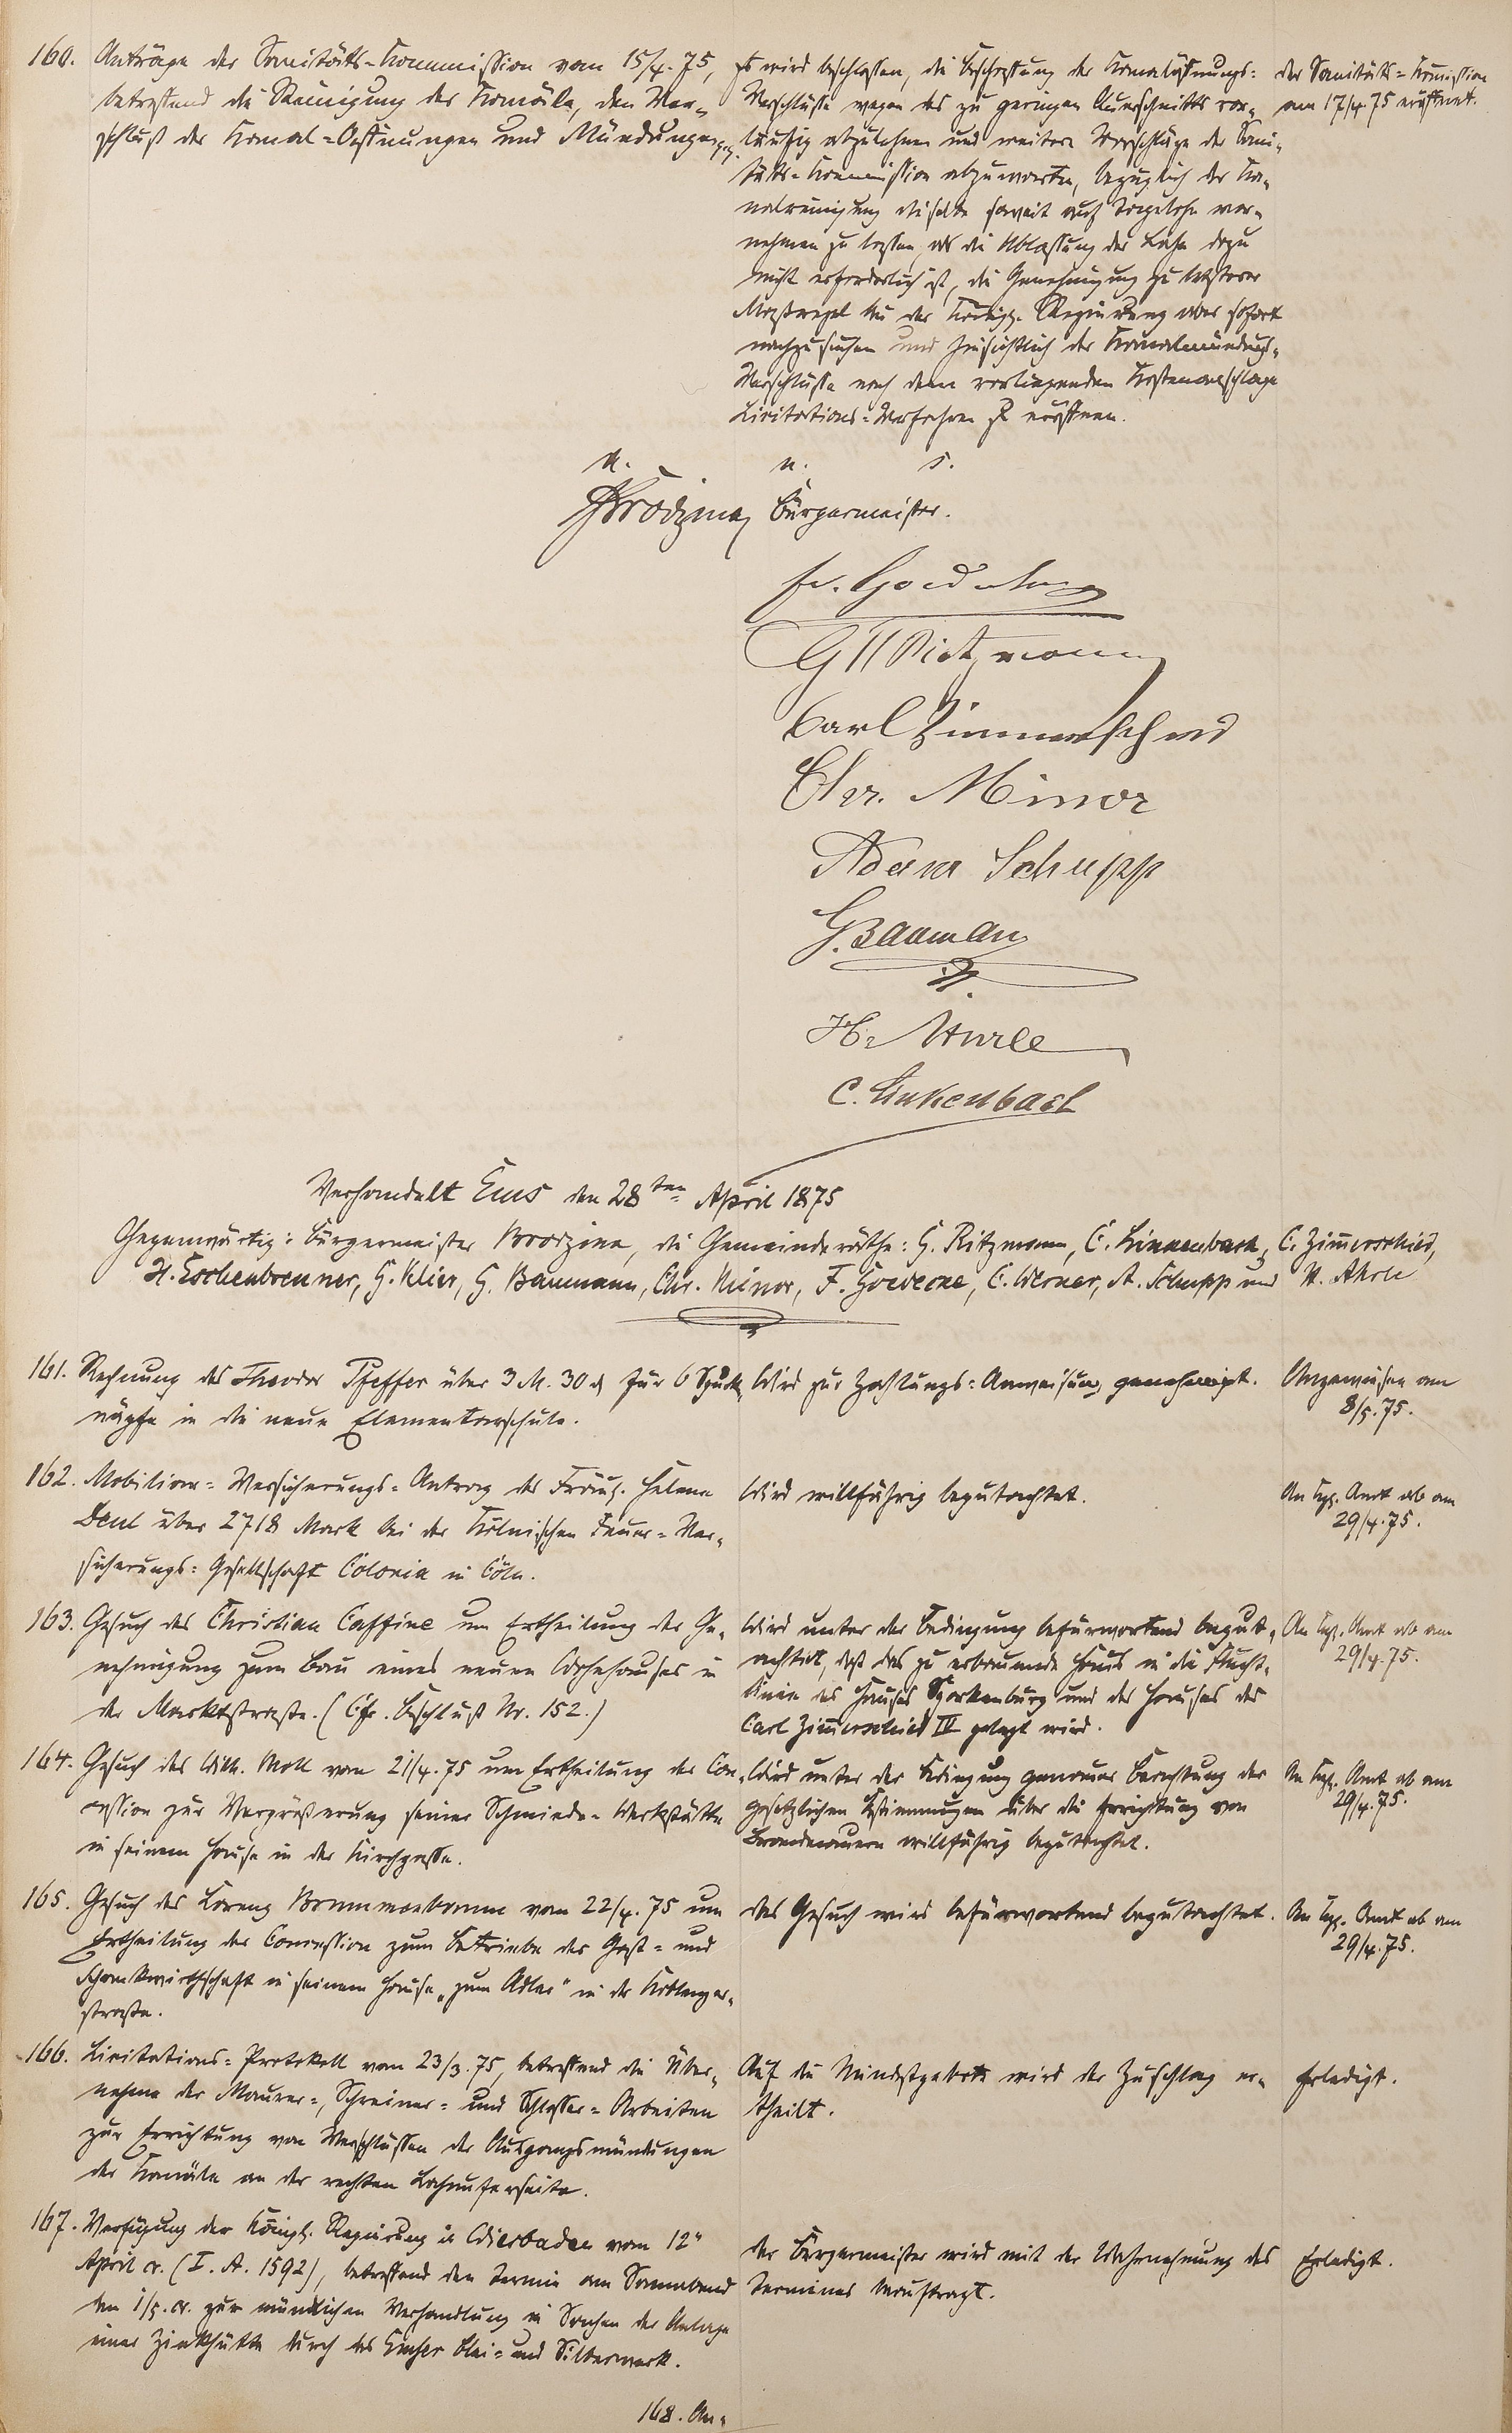 160. Anträge der Sanitäts-Kommission vom 15/4. 75,
betreffend die Reinigung der Kanäle, den Ver-
schluß der Kanal-Oeffnungen und Mündungen pp.
Es wird beschlossen, die Beschaffung der Kanalöffnungs-
Verschlüsse wegen des zu geringen Querschnitts vor-
läufig abzulehnen und weitere Vorschläge der Sani-
täts-Kommission abzuwarten, bezüglich der Ka-
nalreinigung dieselbe soweit auf Tagelohn vor-
nehmen zu lassen, als die Ablassung der Lahn dazu
nicht erforderlich ist, die Genehmigung zu letzterer
Maßregel bei der Königl. Regierung aber sofort
nachzusuchen und hinsichtlich der Kanalmündungs-
Verschlüsse nach dem vorliegenden Kostenanschlage
Licitations-Verfahren zu eröffnen.
Der Sanitäts-Kommission
am 17/4 75 eröffnet.
V. u. s.
Brodzina Bürgermeister.
G H Ritzmann
Carl Zimmerscheid
Chr. Minor
Adam Schupp
G. Bauman
C. Linkenbach
Verhandelt Ems den 28ten April 1875
Gegenwärtig: Bürgermeister Brodzina, die Gemeinderäthe: G. Ritzmann, C. Linkenbach, C. Zimerscheid,
H. Eschenbrenner, G. Klier, G. Baumann, Chr. Minor, F. Goedecke, C. Werner, A. Schupp und H. Ahrle
161. Rechnung des Theodor Pfeffer über 3 M. 30 ₰ für 6 Spuck-
näpfe in die neue Elementarschule.
Wird zur Zahlungs-Anweisung genehmigt.
Angewiesen am
8/5. 75.
162. Mobiliar-Versicherungs-Antrag des Fräul. Helene
Deul über 2718 Mark bei der Kölnischen Feuer-Ver-
sicherungs-Gesellschaft Colonia in Cöln.
Wird willfährig begutachtet.
An Kgl. Amt ab am
29/4. 75.
163. Gesuch des Christian Caffine um Ertheilung der Ge-
nehmigung zum Bau eines neuen Wohnhauses in
der Marktstraße. (Cfr. Beschluß Nr. 152.)
Wird unter der Bedingung befürwortend begut-
achtet, daß das zu erbauende Haus in die Flucht-
linie des Hauses Sporkenburg und des Hauses des
Carl Zimerscheid IV gelegt wird.
An Kgl. Amt ab am
29/4. 75.
164. Gesuch des Wilh. Moll vom 21/4. 75 um Ertheilung der Con-
cession zur Vergrößerung seiner Schmiede-Werkstätte
in seinem Hause in der Kirchgasse.
Wird unter der Bedingung genauer Beachtung der
gesetzlichen Bestimmungen über die Errichtung von
Brandmauern willfährig begutachtet.
An Kgl. Amt ab am
29/4. 75.
165. Gesuch des Lorenz vom 22/4. 75 um
Ertheilung der Concession zum Betriebe der Gast- und
Schankwirthschaft in seinem Hause „zum Adler" in der Koblenzer-
straße.
Das Gesuch wird befürwortend begutachtet.
An Kgl. Amt ab am
29/4. 75.
166. Licitations-Protokoll vom 23/3. 75, betreffend die Über-
nahme der Maurer-, Schreiner- und Schlosser-Arbeiten
zur Errichtung von Verschlüssen der Ausgangsmündungen
der Kanäle an der rechten Lahnuferseite.
Auf die Mindestgebote wird der Zuschlag er-
theilt.
Erledigt.
167. Verfügung der Königl. Regierung in Wiesbaden vom 12"
April cr. (I. A. 1592), betreffend den Termin am Sonnabend
den 1/5. cr. zur mündlichen Verhandlung in Sachen der Anlage
einer Zinkhütte durch das Emser Blei- und Silberwerk.
Der Bürgermeister wird mit der Wahrnehmung des
Termines beauftragt.
Erledigt.
168. An-